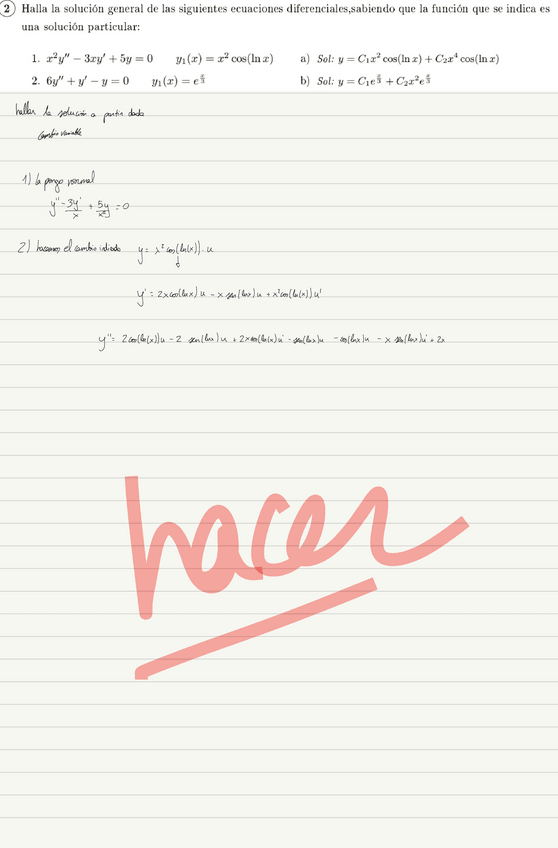 2 Halla la solución general de las siguientes ecuaciones diferenciales,sabiendo que la función que se indica es
una solución particular:
1. x²y″ − 3xy′ + 5y = 0 y₁(x) = x² cos(ln x) a) Sol: y = C₁x² cos(ln x) + C₂x⁴ cos(ln x)
2. 6y″ + y′ − y = 0 y₁(x) = e^{x/3} b) Sol: y = C₁e^{x/3} + C₂x²e^{x/3}
hallar la solución a partir dada
cambio variable
1) la pongo normal
y'' - 3y'/x + 5y/x² = 0
2) hacemos el cambio indicado y = x² cos(ln(x)) · u
y' = 2x cos(ln x) u - x sen(ln x) u + x² cos(ln(x)) u'
y'' = 2 cos(ln(x)) u - 2 sen(ln x) u + 2x cos(ln(x)) u' - sen(ln x) u - cos(ln x) u - x sen(ln x) u' + 2x
hacer